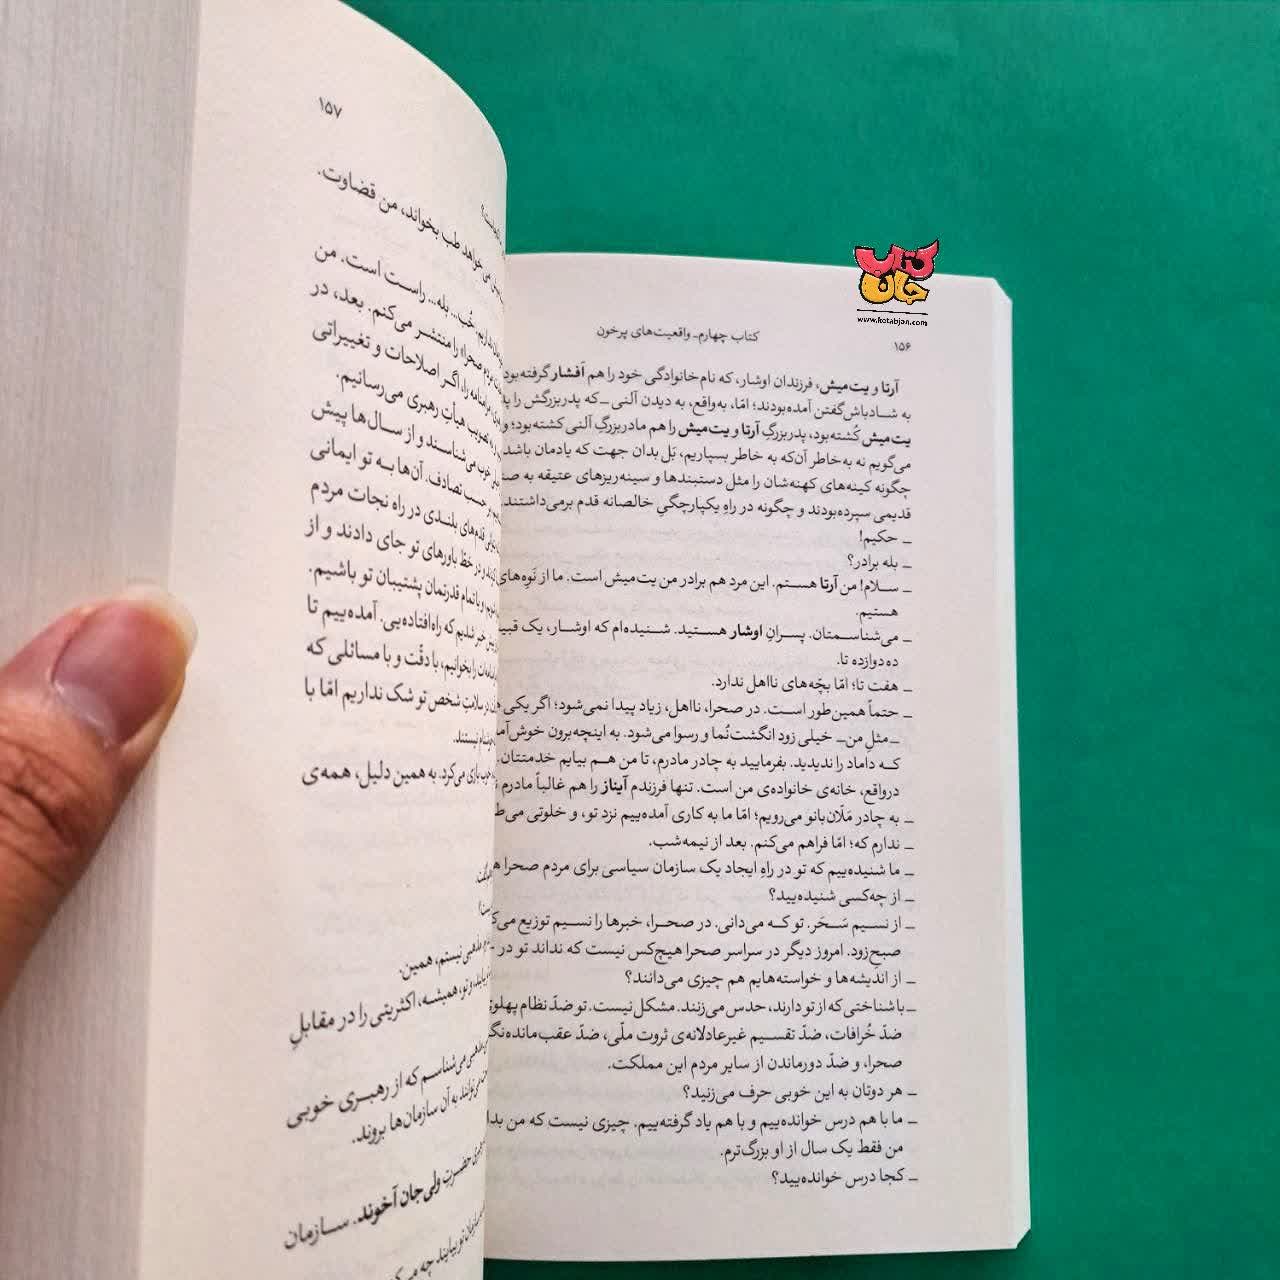 کتاب جان
www.ketabjan.com
۱۵۶
کتاب چهارم ـ واقعیت‌های پرخون
آرتا و یت‌میش، فرزندان اوشار، که نام خانوادگی خود را هم اَفشار گرفته‌بود
به شادباش گفتن آمده‌بودند؛ امّا، به‌واقع، به دیدن آلنی ـ که پدربزرگش را
یت‌میش کُشته‌بود، پدربزرگِ آرتا و یت‌میش را هم مادربزرگِ آلنی کشته‌بود؛ و
می‌گویم نه به‌خاطر آن‌که به خاطر بسپاریم، بَل بدان جهت که یادمان باشد
چگونه کینه‌های کهنه‌شان را مثل دستبندها و سینه‌ریزهای عتیقه به
قدیمی سپرده‌بودند و چگونه در راهِ یکپارچگیِ خالصانه قدم برمی‌داشتند
ـ حکیم!
ـ بله برادر؟
ـ سلام! من آرتا هستم. این مرد هم برادر من یت‌میش است. ما از نَوِه‌های
هستیم.
ـ می‌شناسمتان. پسرانِ اوشار هستید. شنیده‌ام که اوشار، یک
ده دوازده تا.
ـ هفت تا؛ امّا بچّه‌های نااهل ندارد.
ـ حتماً همین‌طور است. در صحرا، نااهل، زیاد پیدا نمی‌شود؛ اگر یکی
ـ مثلِ من ـ خیلی زود انگشت‌نُما و رسوا می‌شود. به اینچه‌برون
که داماد را ندیدید. بفرمایید به چادر مادرم، تا من هم بیایم خدمتتان.
درواقع، خانه‌ی خانواده‌ی من است. تنها فرزندم آیناز را هم غالباً مادرم
ـ به چادر مَلّان‌بانو می‌رویم؛ امّا ما به کاری آمده‌ییم نزد تو، و خلوتی
ـ ندارم که؛ امّا فراهم می‌کنم. بعد از نیمه‌شب.
ـ ما شنیده‌ییم که تو در راهِ ایجاد یک سازمان سیاسی برای مردم صحرا
ـ از چه‌کسی شنیده‌یید؟
ـ از نسیم سَحَر. تو که می‌دانی. در صحرا، خبرها را نسیم توزیع
صبح‌زود. امروز دیگر در سراسر صحرا هیچ‌کس نیست که نداند تو در
ـ از اندیشه‌ها و خواسته‌هایم هم چیزی می‌دانند؟
ـ با شناختی که از تو دارند، حدس می‌زنند. مشکل نیست. تو ضدّ نظام
ضدّ خُرافات، ضدّ تقسیم غیرعادلانه‌ی ثروت ملّی، ضدّ
صحرا، و ضدّ دورماندن از سایر مردم این مملکت.
ـ هر دوتان به این خوبی حرف می‌زنید؟
ـ ما با هم درس خوانده‌ییم و با هم یاد گرفته‌ییم. چیزی نیست که من
من فقط یک سال از او بزرگ‌ترم.
ـ کجا درس خوانده‌یید؟
۱۵۷
می‌خواهد طب بخواند، من قضاوت.
خُب... بله... راست است. من
صحرا» را منتشر می‌کنم. بعد، در
را، اگر اصلاحات و تغییراتی
تصویب هیأت رهبری می‌رسانیم.
خوب می‌شناسند و از سال‌ها پیش
حسب تصادف. آن‌ها به تو ایمانی
قدم‌های بلندی در راه نجات مردم
در خطِ باورهای تو جای دادند و از
با تمام قدرتمان پشتیبان تو باشیم.
شدیم که راه‌افتاده‌یی. آمده‌ییم تا
را بخوانیم، با دقّت و با مسائلی که
سلامتِ شخص تو شک نداریم امّا با
نیستند.
بازی می‌کرد. به همین دلیل، همه‌ی
مذهبی نیستم، همین.
و تو، همیشه، اکثریتی را در مقابلِ
می‌شناسم که از رهبری خوبی
به آن سازمان‌ها بروند.
حضرت ولی‌جان آخوند. سازمان
بیایند چه